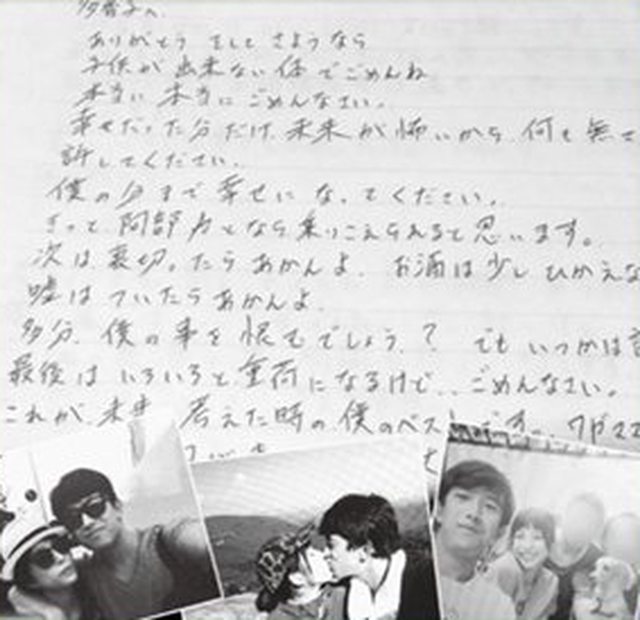 多香子へ
ありがとう そして さようなら
子供が 出来ない 体でごめんね
本当に 本当に ごめんなさい。
幸せだった分だけ 未来が怖いから 何も無
許してください。
僕の分まで 幸せに なってください。
きっと 阿部力となら 乗りこえられると思います。
次は 裏切ったらあかんよ お酒は少しひかえな
嘘は ついたらあかんよ
多分、僕の事を恨むでしょう? でも いつかは
最後は いろいろと 重荷になるけど.. ごめんなさい。
これが 未来 考えた時の 僕のベストです